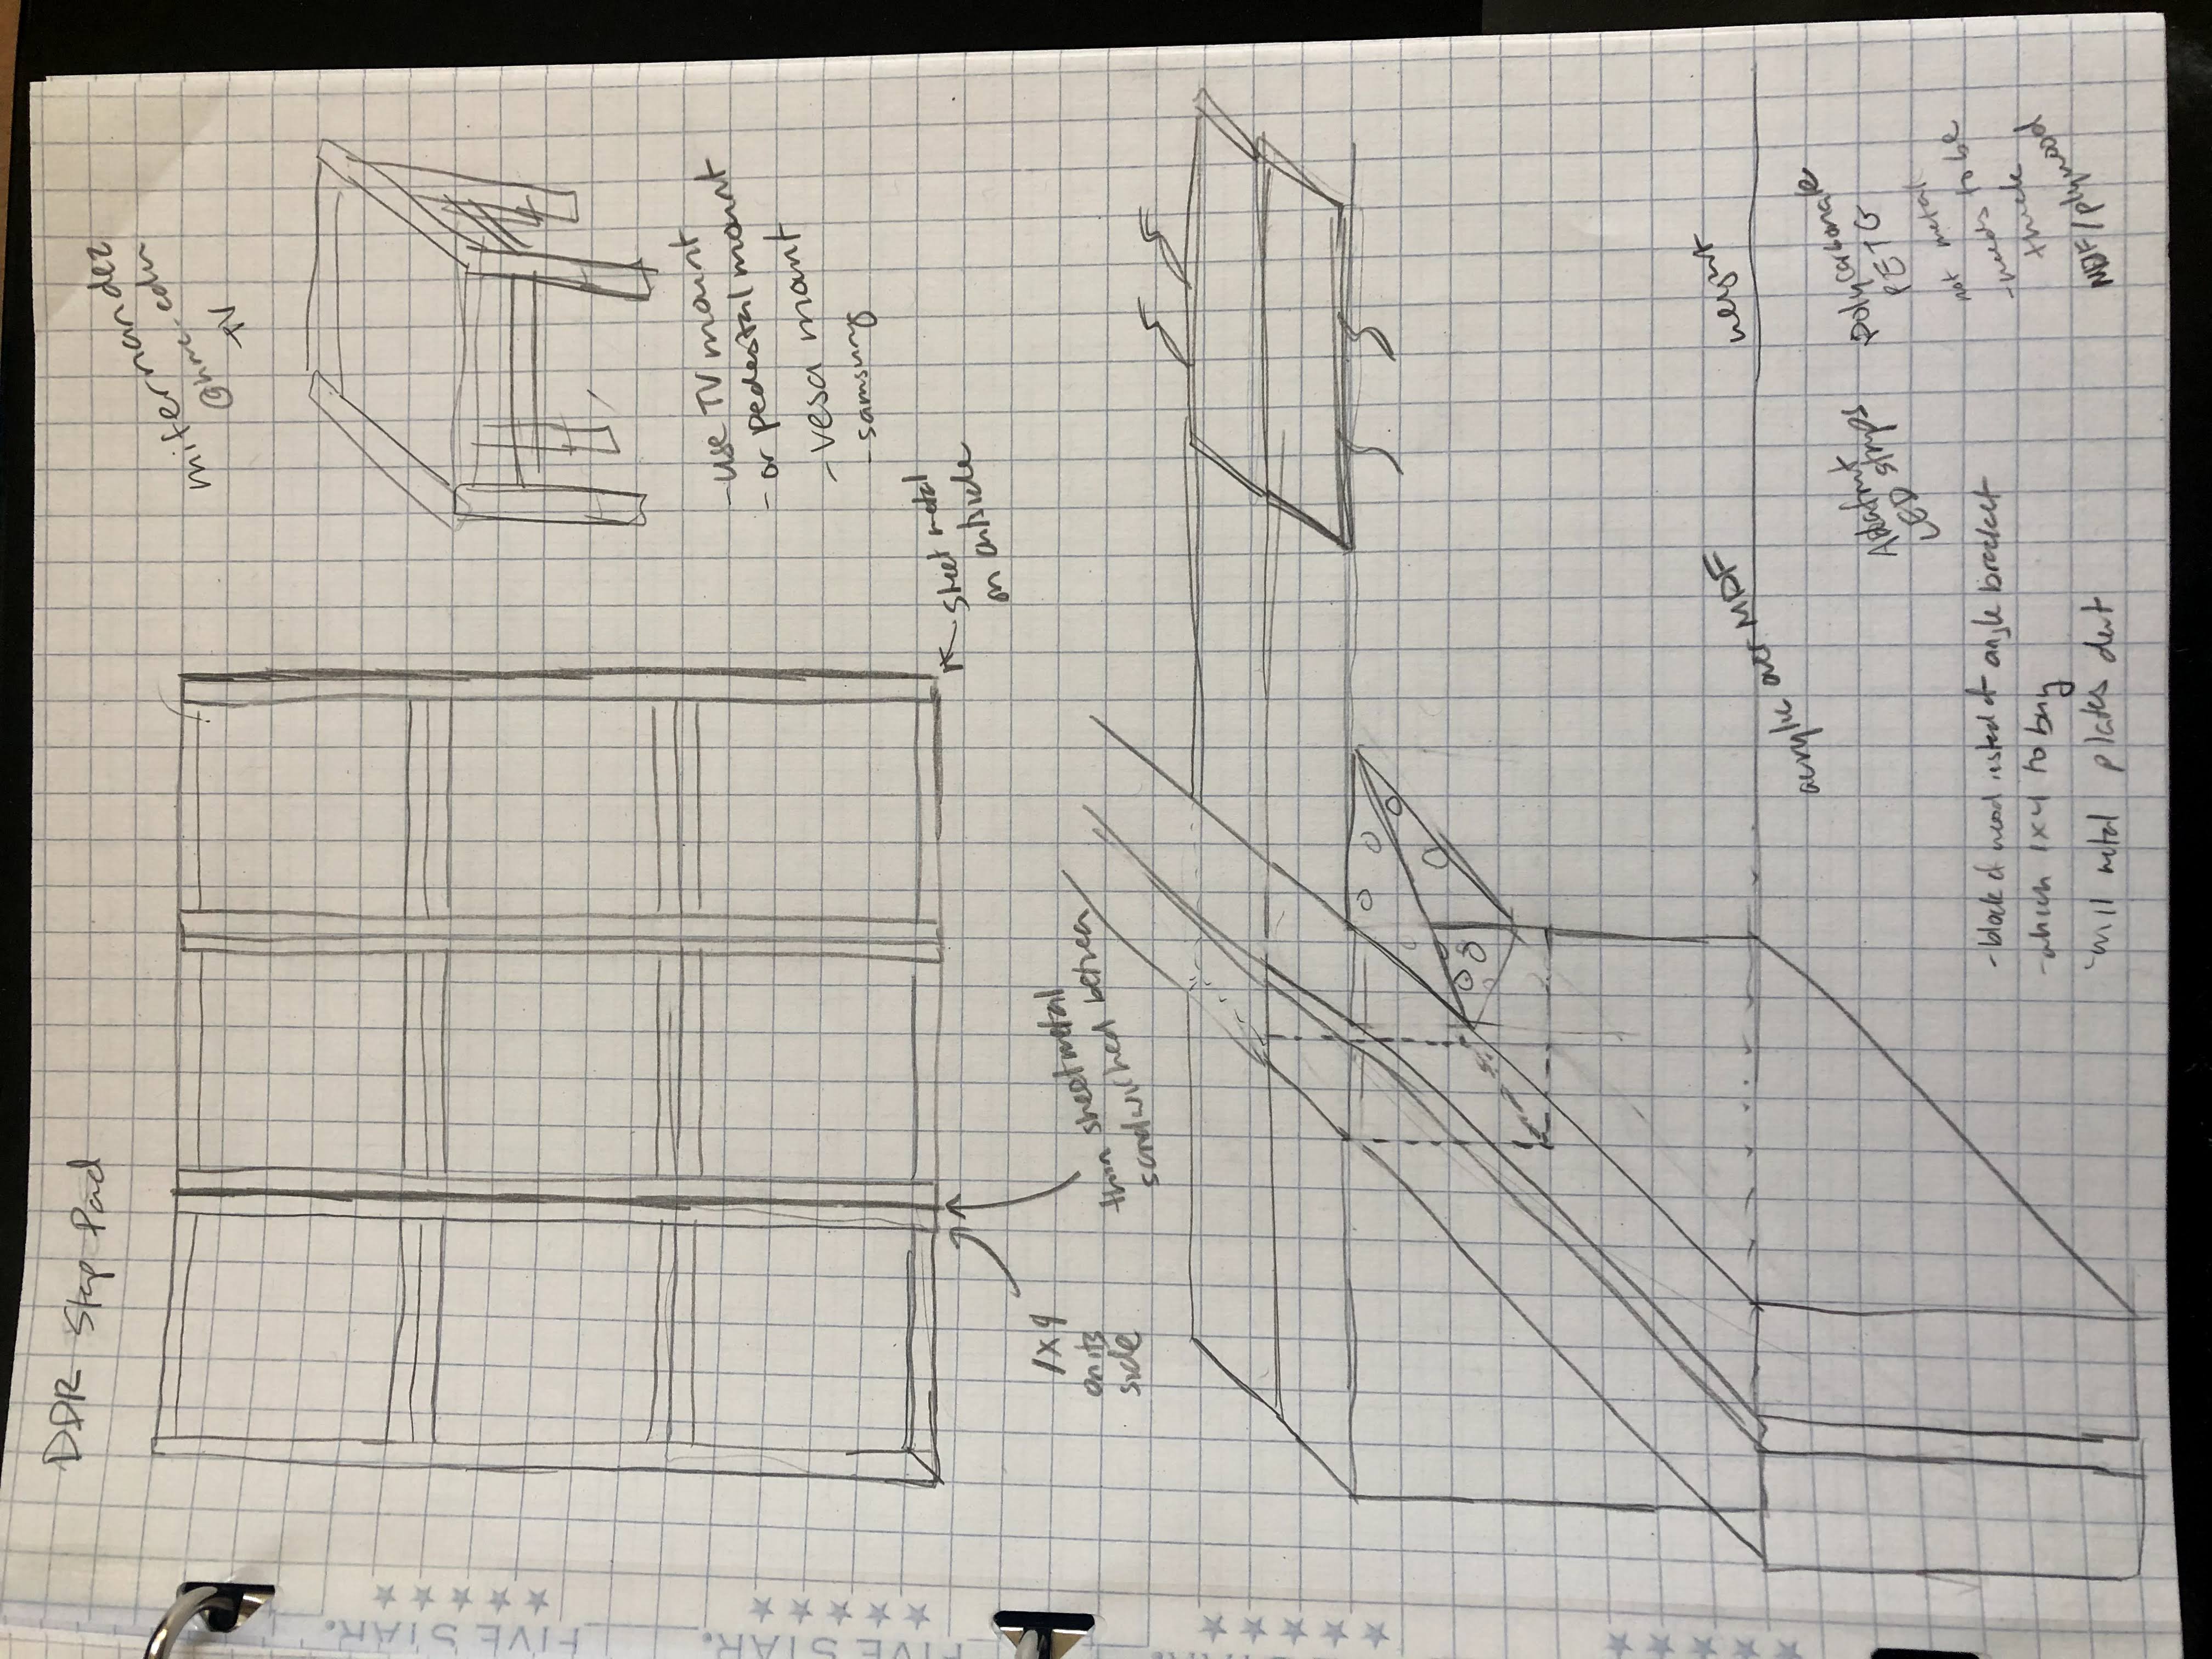 DDR Step Pad
mifernandez
@hmc.edu
TV
- use TV mount
- or pedestal mount
- vesa mount
- samsung
sheet metal
on outside
1x4
on its
side
thin sheet metal
sandwiched between
acrylic over MDF
weight
Adafruit
LED strips
polycarbonate
PETG
not metal
- needs to be
thick
MDF/plywood
- block of wood instead of angle bracket
- which 1x4 to buy
- will metal plates dent
FIVE STAR.
FIVE STAR.